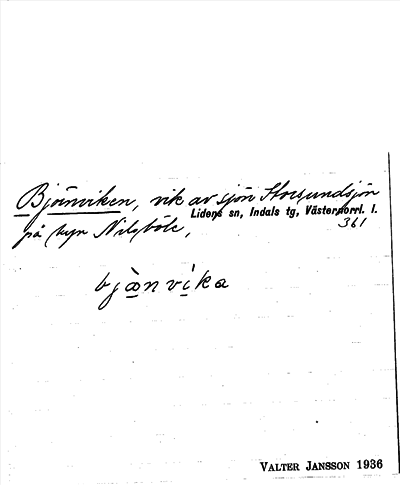 Björnviken, vik av sjön Storsundsjön
Lidens sn, Indals tg, Västernorrl. l.
på byn Nilsböle, 361
bjæ̀nvíka
VALTER JANSSON 1936